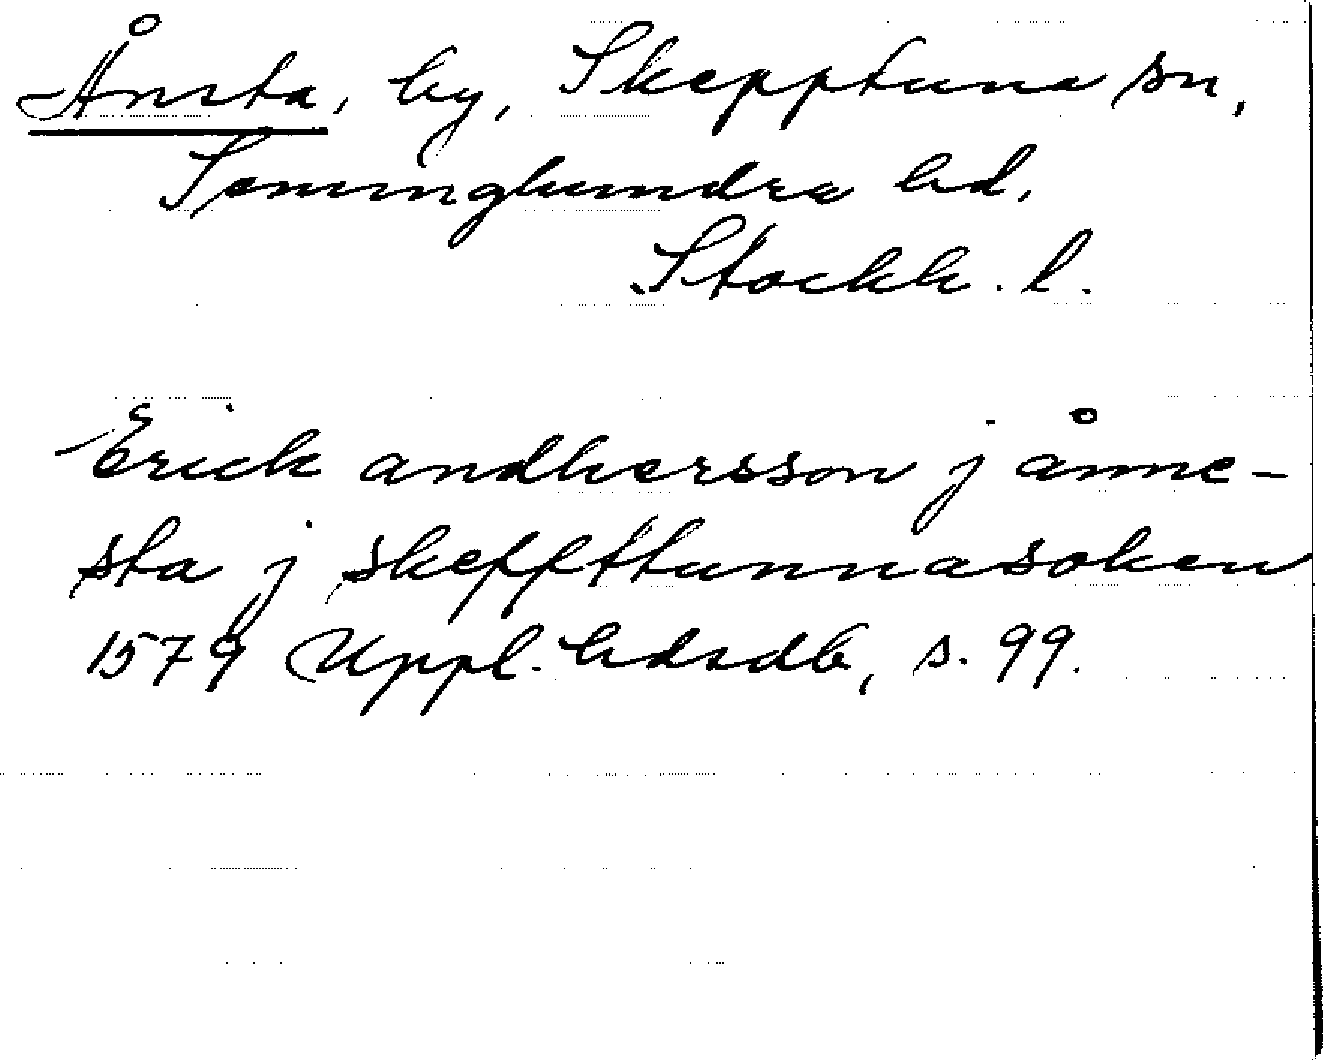 Ånsta, by, Skepptuna sn,
Seminghundra hd,
Stockh. l.
Erick andhersson j ånne-
sta j skeppttunnasoken
1579 Uppl. hdrdb, s. 99.